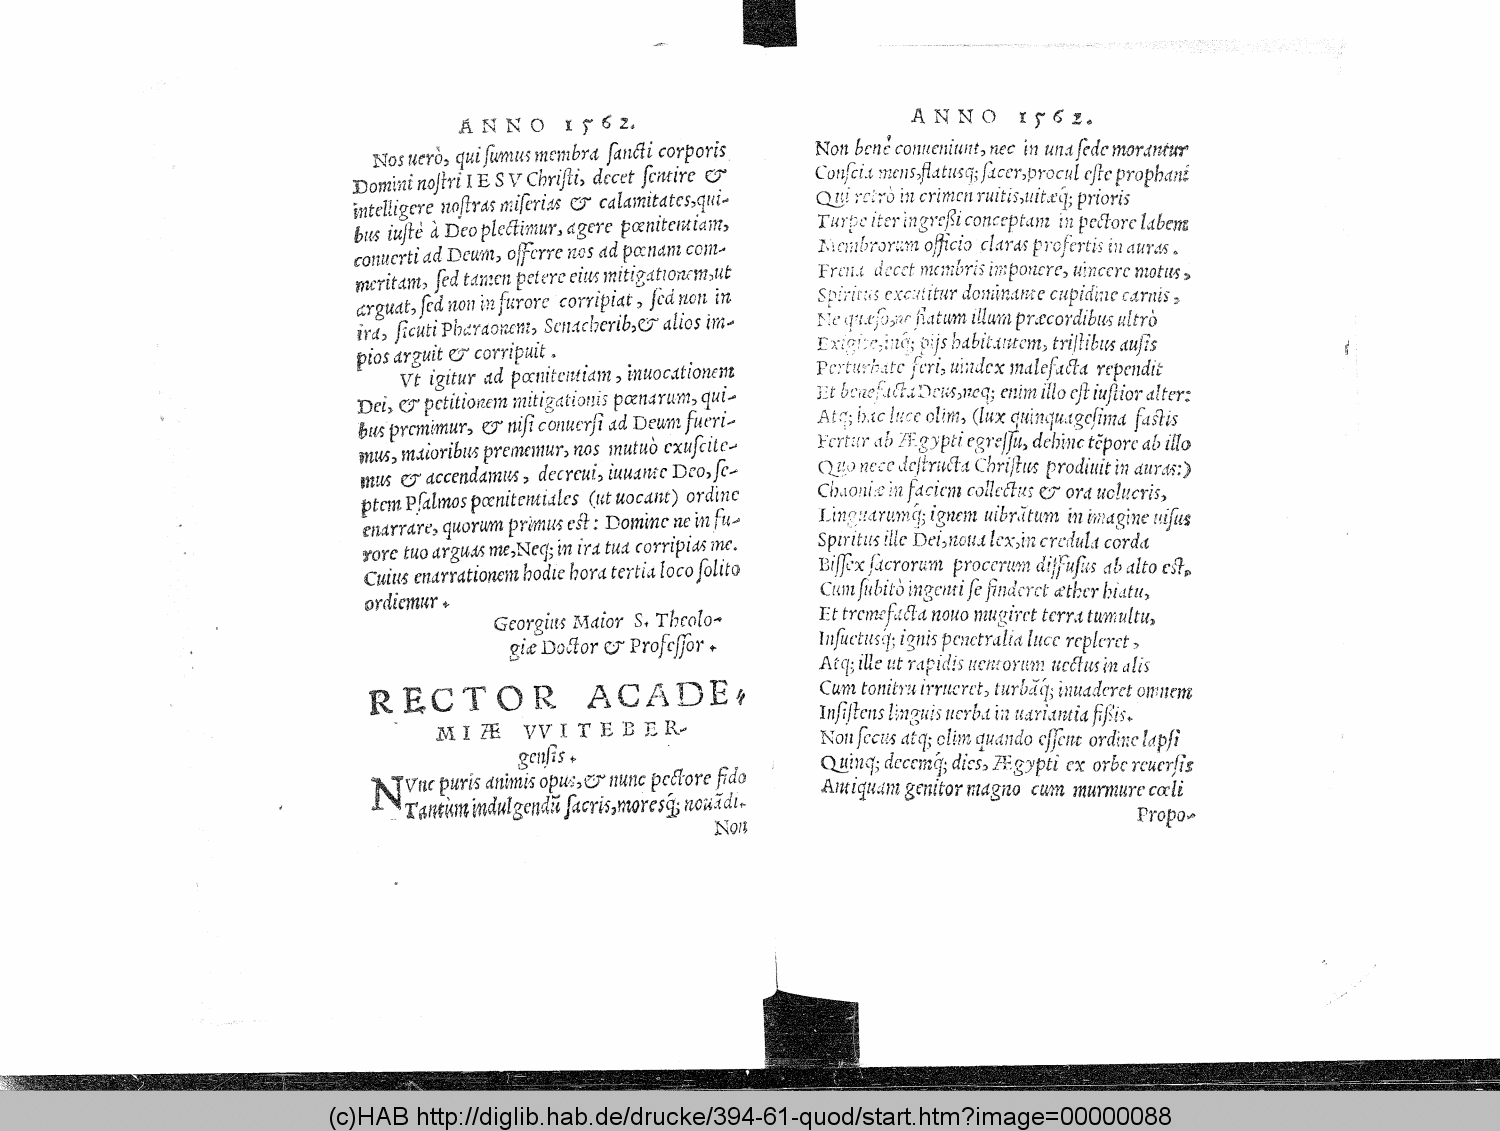 ANNO 1562.
Nos uerò, qui ſumus membra ſancti corporis
Domini noſtri IESV Chriſti, decet ſentire &
intelligere noſtras miſerias & calamitates, qui-
bus iuſtè à Deo plectimur, agere pœnitentiam,
conuerti ad Deum, offerre nos ad pœnam com-
meritam, ſed tamen petere eius mitigationem, ut
arguat, ſed non in furore corripiat, ſed non in
ira, ſicuti Pharaonem, Senacherib, & alios im-
pios arguit & corripuit.
Vt igitur ad pœnitentiam, inuocationem
Dei, & petitionem mitigationis pœnarum, qui-
bus premimur, & niſi conuerſi ad Deum fueri-
mus, maioribus prememur, nos mutuò exuſcite-
mus & accendamus, decreui, iuuante Deo, ſe-
ptem Pſalmos pœnitentiales (ut uocant) ordine
enarrare, quorum primus eſt: Domine ne in fu-
rore tuo arguas me, Neq; in ira tua corripias me.
Cuius enarrationem hodie hora tertia loco ſolito
ordiemur.
Georgius Maior S. Theolo-
giæ Doctor & Profeſſor.
RECTOR ACADE-
MIÆ VVITEBER-
genſis.
NVnc puris animis opus, & nunc pectore fido
Tantùm indulgendũ ſacris, moresq́; nouãdi.
Non
ANNO 1562.
Non benè conueniunt, nec in una ſede morantur
Conſcia mens, flatusq; ſacer, procul eſte prophani
Qui retrò in crimen ruitis, uitæq́; prioris
Turpe iter ingreßi conceptam in pectore labem
Membrorum officio claras profertis in auras.
Frena decet membris imponere, uincere motus,
Spiritus excutitur dominante cupidine carnis,
Ne quæſo, ne flatum illum præcordibus ultrò
Exigite, inq́; pijs habitantem, triſtibus auſis
Perturbate feri, uindex malefacta rependit
Et benefacta Deus, neq; enim illo eſt iuſtior alter:
Atq; hac luce olim, (lux quinquageſima faſtis
Fertur ab Ægypti egreſſu, dehinc tẽpore ab illo
Quo nece deſtructa Chriſtus prodiuit in auras:)
Chaoniæ in faciem collectus & ora uolucris,
Linguarumq́; ignem uibrãtum in imagine uiſus
Spiritus ille Dei, noua lex, in credula corda
Biſſex ſacrorum procerum diffuſus ab alto eſt,
Cum ſubitò ingenti ſe finderet æther hiatu,
Et tremefacta nouo mugiret terra tumultu,
Inſuetusq́; ignis penetralia luce repleret,
Atq; ille ut rapidis uentorum uectus in alis
Cum tonitru irrueret, turbãq́; inuaderet omnem
Inſiſtens linguis uerba in uariantia fißis.
Non ſecus atq; olim quando eſſent ordine lapſi
Quinq; decemq́; dies, Ægypti ex orbe reuerſis
Antiquam genitor magno cum murmure cœli
Propo-
(c)HAB http://diglib.hab.de/drucke/394-61-quod/start.htm?image=00000088